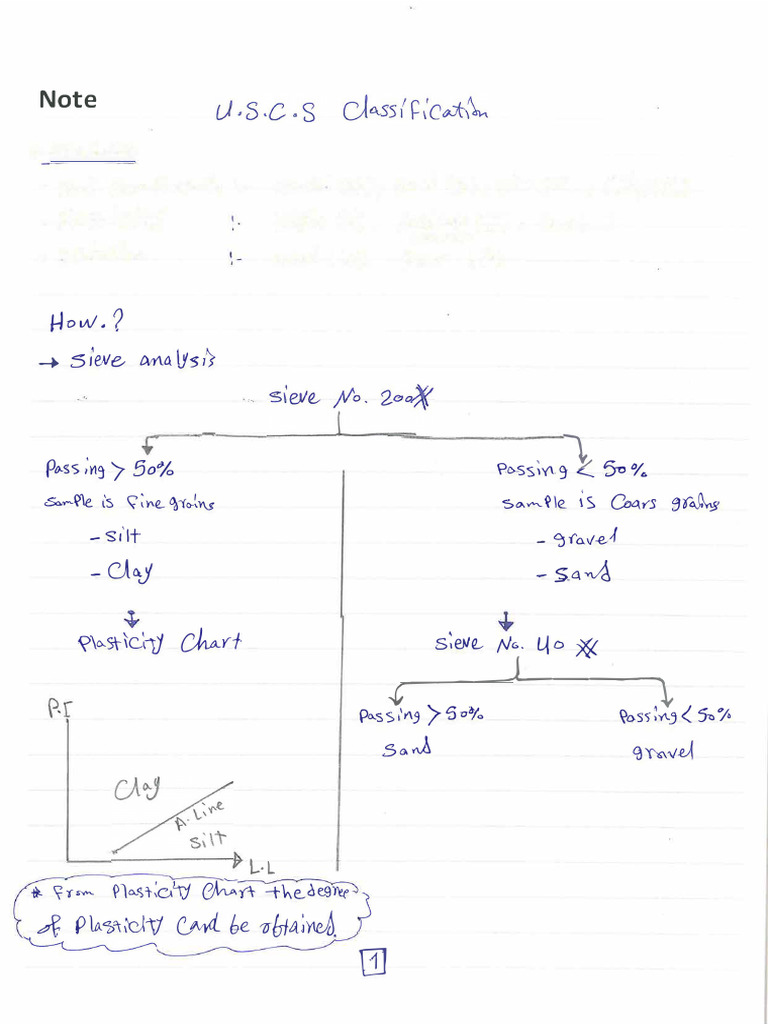 Note
U.S.C.S Classification
:-
:-
How.?
→ Sieve analysis
Sieve No. 200
Passing > 50%
Sample is fine grains
- Silt
- Clay
Plasticity Chart
P.I
Clay
A-Line
Silt
L.L
* From Plasticity Chart the degree
of Plasticity Cand be obtained.
Passing < 50%
Sample is Coars grains
- gravel
- Sand
Sieve No. 40
Passing > 50%
Sand
Passing < 50%
gravel
1